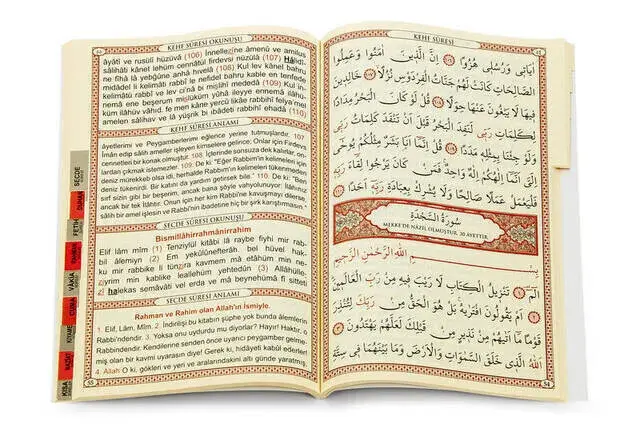 ٥٤
KEHF SÛRESİ
اٰيَاتِي وَرُسُلِي هُزُوًا ﴿١٠٦﴾ اِنَّ الَّذِينَ اٰمَنُوا وَعَمِلُوا
الصَّالِحَاتِ كَانَتْ لَهُمْ جَنَّاتُ الْفِرْدَوْسِ نُزُلًا ﴿١٠٧﴾ خَالِدِينَ
فِيهَا لَا يَبْغُونَ عَنْهَا حِوَلًا ﴿١٠٨﴾ قُلْ لَوْ كَانَ الْبَحْرُ مِدَادًا
لِكَلِمَاتِ رَبِّي لَنَفِدَ الْبَحْرُ قَبْلَ اَنْ تَنْفَدَ كَلِمَاتُ رَبِّي
وَلَوْ جِئْنَا بِمِثْلِهِ مَدَدًا ﴿١٠٩﴾ قُلْ اِنَّمَا اَنَا بَشَرٌ مِثْلُكُمْ يُوحٰى
اِلَيَّ اَنَّمَا اِلٰهُكُمْ اِلٰهٌ وَاحِدٌ فَمَنْ كَانَ يَرْجُوا لِقَاءَ رَبِّهِ
فَلْيَعْمَلْ عَمَلًا صَالِحًا وَلَا يُشْرِكْ بِعِبَادَةِ رَبِّهِ اَحَدًا ﴿١١٠﴾
سُورَةُ السَّجْدَةِ
MEKKE'DE NÂZİL OLMUŞTUR. 30 ÂYETTİR.
بِسْمِ اللّٰهِ الرَّحْمٰنِ الرَّحِيمِ
الٓمٓ ﴿١﴾ تَنْزِيلُ الْكِتَابِ لَا رَيْبَ فِيهِ مِنْ رَبِّ الْعَالَمِينَ
﴿٢﴾ اَمْ يَقُولُونَ افْتَرٰيهُ بَلْ هُوَ الْحَقُّ مِنْ رَبِّكَ لِتُنْذِرَ
قَوْمًا مَا اَتٰيهُمْ مِنْ نَذِيرٍ مِنْ قَبْلِكَ لَعَلَّهُمْ يَهْتَدُونَ ﴿٣﴾
اَللّٰهُ الَّذِي خَلَقَ السَّمٰوَاتِ وَالْاَرْضَ وَمَا بَيْنَهُمَا فِي سِتَّةِ
54
KEHF SÛRESİ OKUNUŞU
âyâtî ve rusulî hüzüvâ (106) İnnellezîne âmenû ve amilus
sâlihâti kânet lehüm cennâtül firdevsi nüzülâ (107) Hâlidî-
ne fîhâ lâ yebğûne anhâ hıvelâ (108) Kul lev kânel bahru
midâdel li kelimâti rabbî le nefidel bahru kable en tenfede
kelimâtü rabbî ve lev ci'nâ bi mislihî mededâ (109) Kul in-
nemâ ene beşerum mislüküm yûhâ ileyye ennemâ ilâhü-
küm ilâhüv vâhıd. fe men kâne yercû likâe rabbihî felya'mel
amelen sâlihav ve lâ yüşrik bi ıbâdeti rabbihî ehadâ (110)
KEHF SÛRESİ ANLAMI
âyetlerimi ve Peygamberlerimi eğlence yerine tutmuşlardır. 107.
İmân edip sâlih ameller işleyenlere gelince; Onlar için Firdevs
cennetleri bir konak olmuştur. 108. İçlerinde sonsuza dek kalırlar, on-
lardan çıkmak istemezler. 109. De ki: "Eğer Rabbimin kelimeleri için
deniz mürekkeb olsa idi, herhalde Rabbimin kelimeleri tükenmeden
deniz tükenirdi. Bir katını da yardım getirsek bile." 110. De ki: "Ben
sırf sizin gibi bir beşerim, ancak bana şöyle vahyolunuyor: İlâhınız
ancak bir tek ilâhtır. Onun için her kim Rabbi'ne kavuşmayı dilerse,
sâlih bir amel işlesin ve Rabbi'nin ibâdetine hiç bir şirk karıştırmasın."
SECDE SÛRESİ OKUNUŞU
Bismillâhirrahmânirrahîm
Elif lâm mîm (1) Tenzîlül kitâbi lâ raybe fîyhi mir rab-
bil âlemiyn (2) Em yekûlûnefterâh. bel hüvel hak-
ku mir rabbike li tünzira kavmem mâ etâhüm min ne-
ziyrim min kablike leallehüm yehtedûn (3) Allâhülle-
zî halekas semâvâti vel erda ve mâ beynehümâ fî sitteti
SECDE SÛRESİ ANLAMI
Rahman ve Rahim olan Allah'ın İsmiyle.
1. Elif, Lâm, Mîm. 2. İndirilişi bu kitabın şüphe yok bunda âlemlerin
Rabbi'ndendir. 3. Yoksa onu uydurdu mu diyorlar? Hayır! Haktır, o
Rabbindendir. Kendilerine senden önce uyarıcı peygamber gelme-
miş olan bir kavmi uyarasın diye! Gerek ki, hidâyeti kabûl ederler!
4. Allah O ki, gökleri ve yeri ve aralarındakini altı günde yaratmış.
55
SECDE
DUHAN
FETİH
RAHMAN
VÂKIA
CUMA
KIYAME
KISA